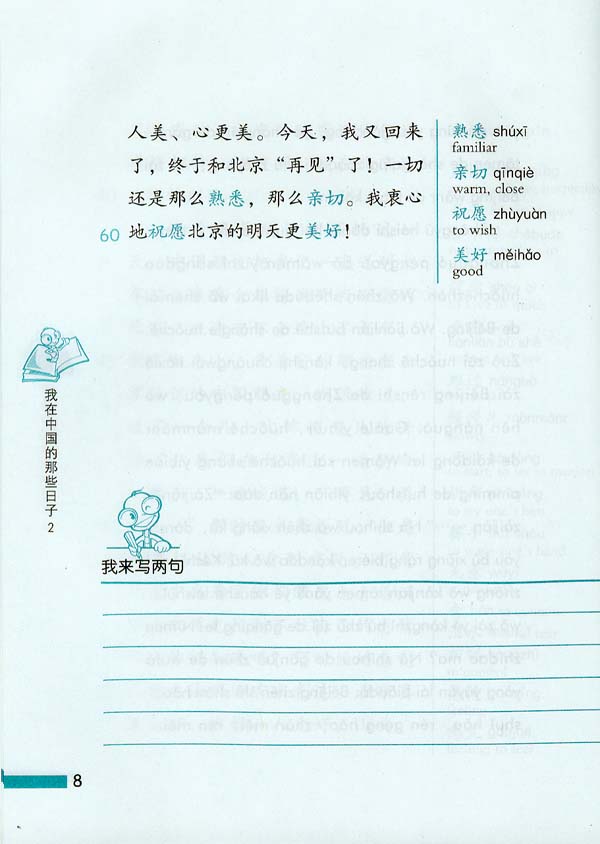 人美、心更美。今天，我又回来
了，终于和北京“再见”了！一切
还是那么熟悉，那么亲切。我衷心
60 地祝愿北京的明天更美好！
熟悉 shúxī
familiar
亲切 qīnqiè
warm, close
祝愿 zhùyuàn
to wish
美好 měihǎo
good
我在中国的那些日子 2
我来写两句
8